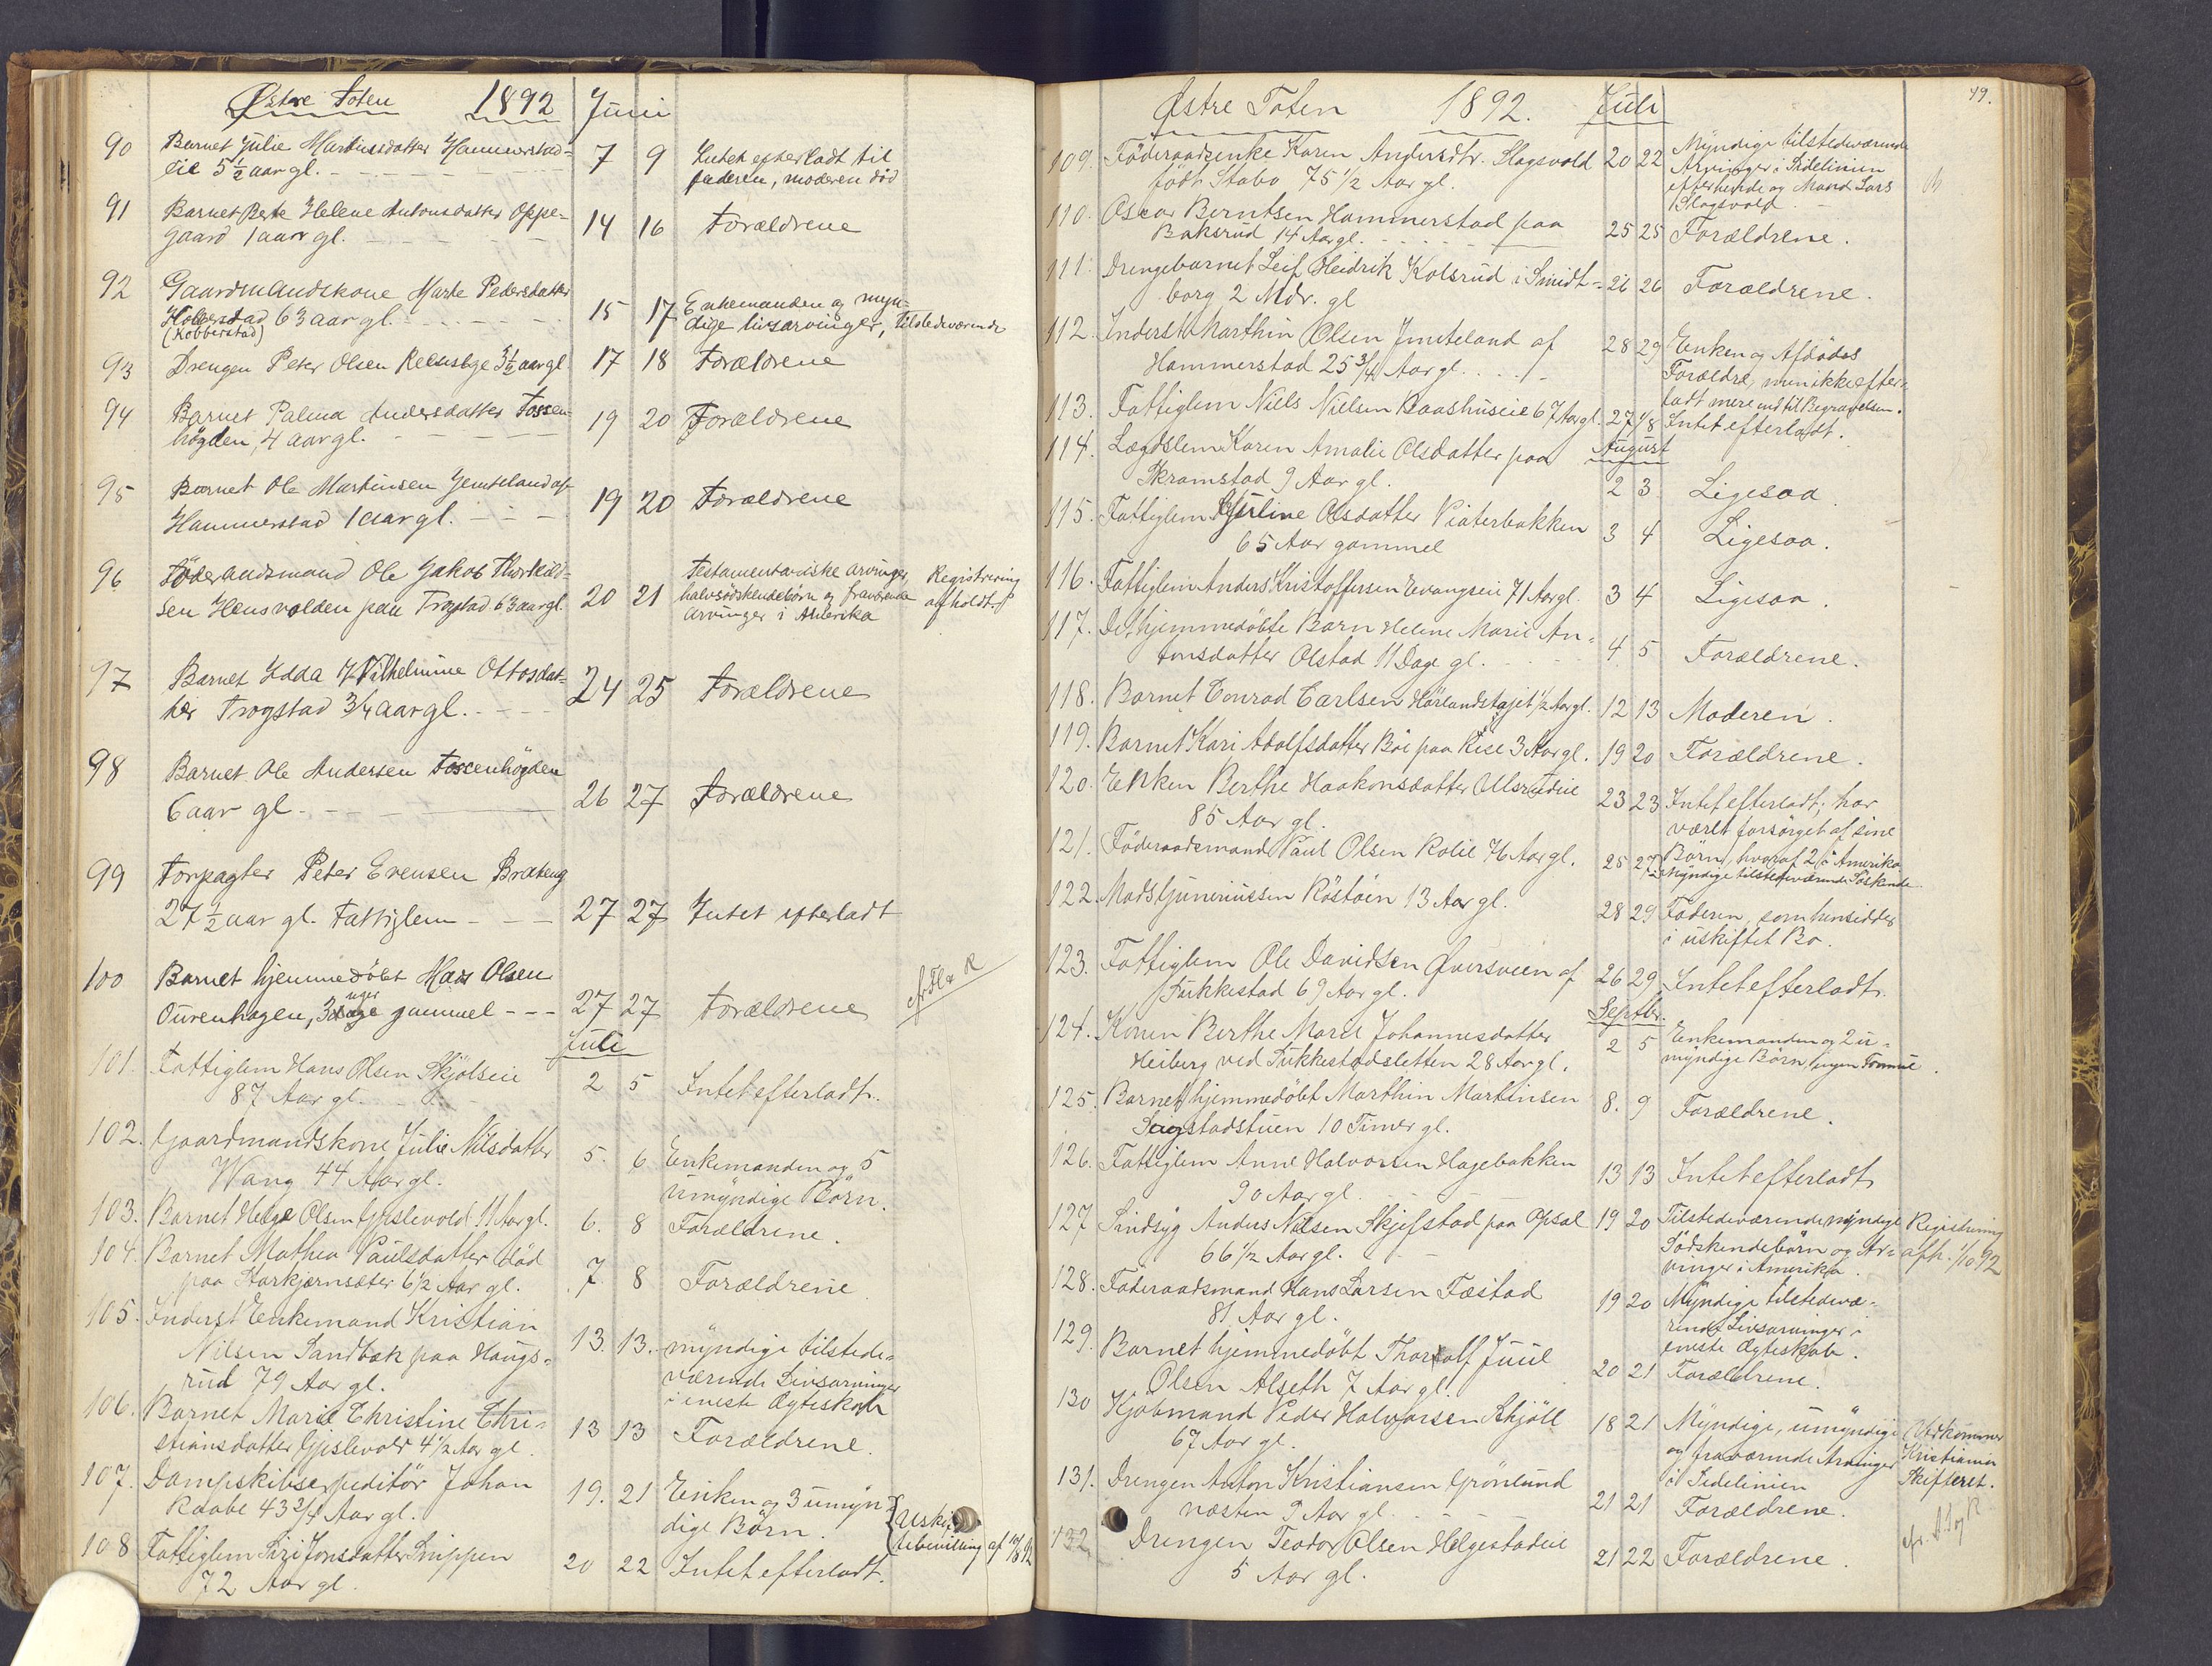 Østre Toten 1892 Juni
90 Barnet Julie Martinsdatter Hammerstad-
eie 5½ aar gl. 7 9 Intet efterladt til
faderen, moderen död
91 Barnet Berte Helene Antonsdatter Oppe-
gaard 1 aar gl. 14 16 Forældrene
92 Gaardmandskone Marte Pedersdatter
Kolberstad 63 aar gl. 15 17 Enkemanden og myn-
(Kobberstad) dige livsarvinger, tilstedeværende
93 Drengen Peter Olsen 3½ aar gl 17 18 Forældrene
94 Barnet Palma Andersdatter Fossen-
högden, 4 aar gl. 19 20 Forældrene
95 Barnet Ole Martinsen Jemteland af
Hammerstad 1 aar gl. 19 20 Forældrene
96 Föderaadsmand Ole Jakob Thorkild-
sen Hensvolden paa Trogstad 63 aar gl. 20 21 Testamentariske arvinger,
halvsödskendebörn og fraværende
arvinger i Amerika
Registrering
afholdt
97 Barnet Edda Vilhelmine Ottosdat-
ter Trogstad 3/4 aar gl. 24 25 Forældrene
98 Barnet Ole Andersen Fossenhögden
6 aar gl. 26 27 Forældrene
99 Forpagter Peter Evensen Brateng
27½ aar gl. Fattiglem 27 27 Intet efterladt
100 Barnet hjemmedöbt Hans Olsen
uger
Ourenhagen, 3 dage gammel 27 27 Forældrene
Juli
101. Fattiglem Hans Olsen Skjölseie
87 Aar gl. 2 5 Intet efterladt.
102. Gaardmandskone Julie Nilsdatter
Wang 44 Aar gl. 5. 6 Enkemanden og 5
umyndige Börn.
103. Barnet Helge Olsen Gjislevold 11 Aar gl. 6. 8 Forældrene.
104. Barnet Mathea Paulsdatter död
paa Storkjernsæter 6½ Aar gl. 7. 8 Forældrene
105. Inderst Enkemand Kristian
Nilsen Sandbæk paa Haugs-
rud 79 Aar gl. 13. 13. myndige tilstede-
værende Livsarvinger
i eneste Ægteskab
106. Barnet Marie Christine Chri-
stiansdatter Gjislevold 4½ Aar gl. 13 13 Forældrene.
107. Dampskibsexpeditör Johan
Raabe 43 3/4 Aar gl. 19. 21 Enken og 3 umyn-
dige Börn. Uskif-
tebevilling af
108 Fattiglem Siri Jonsdatter Snippen
72 Aar gl. 20 22 Intet efterladt.
49.
Østre Toten 1892. Juli
109. Föderaadsenke Karen Andersdtr. Slagsvold 20 22 Myndige tilstedeværende
födt Stabo 75½ Aar gl. Arvinger i Sidelinien
efter hende og Mand Lars
Slagsvold
110. Oscar Berntsen Hammerstad paa
Baksrud 14 Aar gl. 25 25 Forældrene.
111. Drengebarnet Leif Heidrik Kolsrud i Smidt-
borg 2 Mdr. gl 26 26 Forældrene.
112. Inderst Marthin Olsen Jmteland af
Hammerstad 25 3/4 Aar gl. 28 29 Enken og Afdödes
Forældre, men ikke efter-
ladt mere end til Begravelsen.
113. Fattiglem Niels Nielsen Baashuseie 67 Aar gl. 27 1/8 Intet efterladt.
August
114. Lægdslem Karen Amalie Olsdatter paa
Skramstad 9 Aar gl. 2 3 Ligesaa
115. Fattiglem Olsdatter Viaterbakken
65 Aar gammel 3 4 Ligesaa.
116. Fattiglem Anders Kristoffersen Evangseie 71 Aar gl. 3 4 Ligesaa.
117. Det hjemmedöbte Barn Helene Marie An-
tonsdatter Olstad 11 Dage gl. 4 5 Forældrene.
118. Barnet Conrad Carlsen Hörlandstajet ½ Aar gl. 12 13 Moderen.
119. Barnet Kari Adolfsdatter Böe paa Rise 3 Aar gl. 19 20 Forældrene.
120. Enken Berthe Haakonsdatter Ullsrudeie
85 Aar gl. 23 23 Intet efterladt; har
været forsörget af sine
Börn, hvoraf 2 i Amerika
121. Föderaadsmand Paul Olsen Kolie 76 Aar gl. 25 27 Myndige tilstedeværende Söskende
122. Mads Gunerinssen Röstöen 13 Aar gl. 28 29 Faderen, som hensidder
i uskiftet Bo.
123. Fattiglem Ole Davidsen Øversveen af
Sukkestad 69 Aar gl. 26 29 Intet efterladt.
Septbr.
124. Konen Berthe Marie Johannesdatter
Heiberg ved Sukkestadsletten 28 Aar gl. 2 5 Enkemanden og 2 u-
myndige Börn, ingen Formue.
125. Barnet hjemmedöbt Marthin Martinsen
Saugstadstuen 10 Timer gl. 8. 9 Forældrene.
126. Fattiglem Anne Halvorsen Hagebakken
90 Aar gl. 13 13 Intet efterladt
127 Sindsyg Anders Nilsen Skjefstad paa Opsal
66½ Aar gl. 19 20 Tilstedeværende myndige
Södskendebörn og Ar-
vinger i Amerika.
Registrering
afh. 1/10 92
128. Föderaadsmand Hans Larsen Fæstad
81 Aar gl. 19 20 Myndige tilstedevæ-
rende Livsarvinger i
eneste Ægteskab.
129. Barnet hjemmedöbt Thorolf Juul
Olsen Alseth 7 Aar gl. 20 21 Forældrene.
130 Kjöbmand Peder Halvorsen Skjöll
67 Aar gl. 18 21 Myndige, umyndige
og fraværende Arvinger
i Sidelinien
Vedkommer
Kristiania
Skifteret.
131. Drengen Anton Kristiansen Grönlund
næsten 9 Aar gl. 21 21 Forældrene.
132 Drengen Teodor Olsen Helgestadeie
5 Aar gl. 21 22 Forældrene.